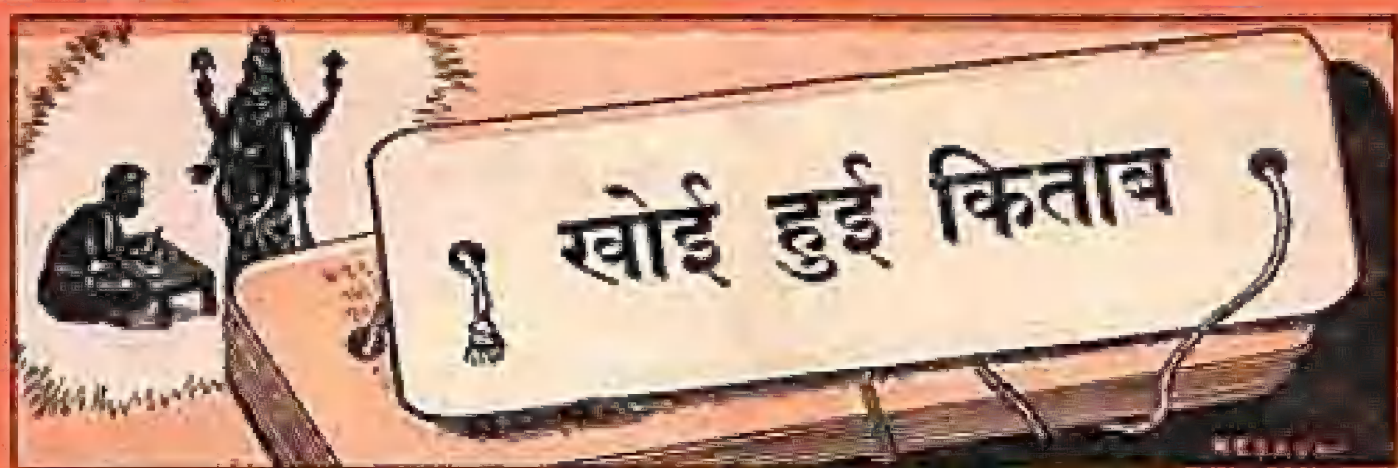 खोई हुई किताब